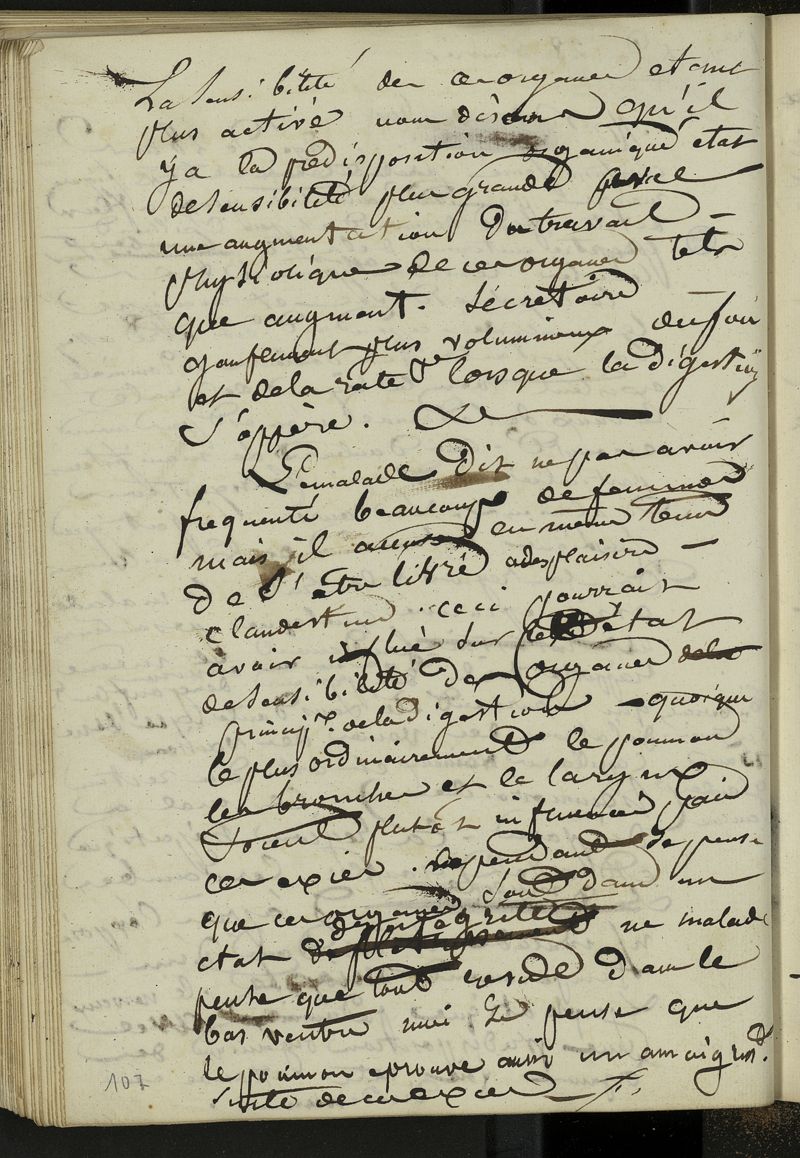 La sensibilité de ces organes etant
plus activé nous disons qu'il
y a la prédisposition organique etat
de sensibilité plus grande
une augmentation du travail
physiologique de ces organes tels
que augment. sécrétoire
gonflement plus volumineux du foie
et de la rate lorsque la digestion
s'oppère.
Le malade dit ne pas avoir
frequenté beaucoup de femmes
mais il accuse en même tems
de s'etre livré a des plaisirs
clandestins. ceci pourrait
avoir influé sur l'état
de sensibilité des organes de la
princip. de la digestion quoique
le plus ordinairement le poumon
les bronches et le larynx
soient plutôt influencés par
ces exces. cependant je pense
que ces organes sont dans un
etat d'intégrité ne malade
pense que tout reside dans le
bas ventre moi je pense que
le poumon eprouve aussi un amaigriss.t
suite de ces exces
107